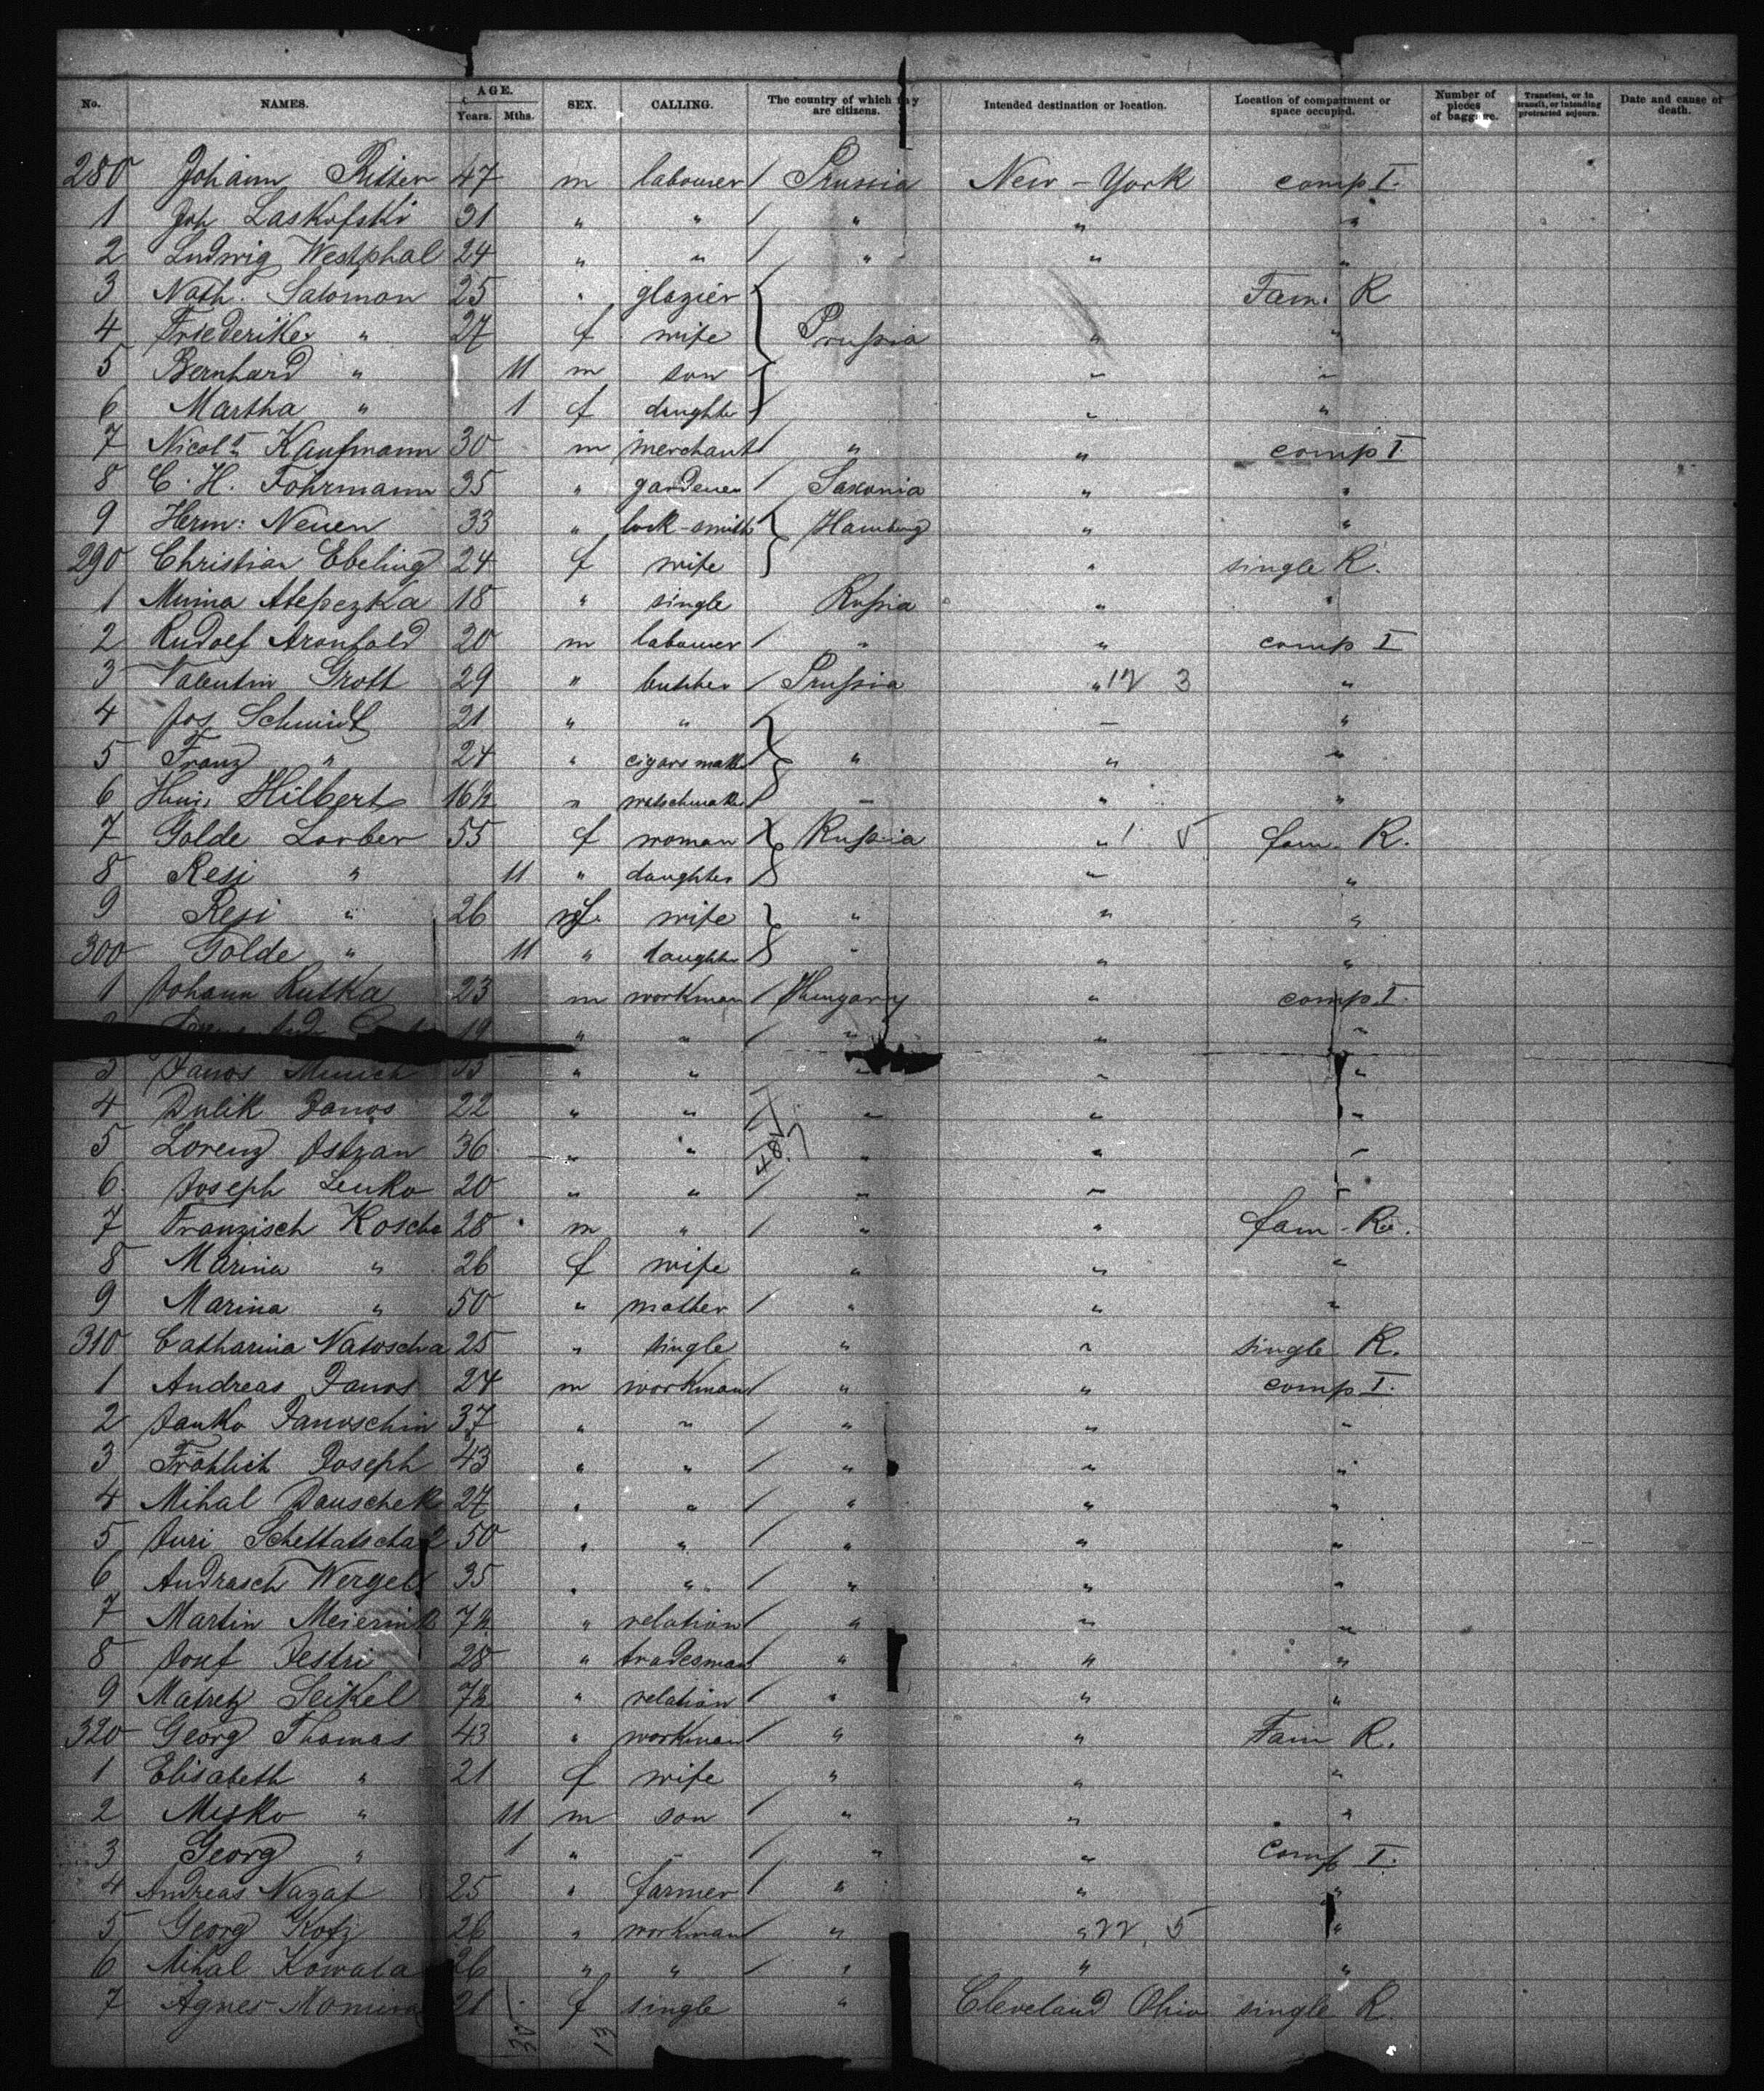 No. NAMES. AGE. Years. Mths. SEX. CALLING. The country of which they are citizens. Intended destination or location. Location of compartment or space occupied. Number of pieces of baggage. Transient, or in transit, or intending protracted sojourn. Date and cause of death.
280 Johann Ritter 47 m labourer / Prussia New-York comp I.
1 Joh Laskofski 31 " " / " " "
2 Ludwig Westphal 24 " " / " " "
3 Nath. Salomon 25 " glazier Fam. R
4 Friederike " 27 f wife Prussia " "
5 Bernhard " 11 m son " "
6 Martha " 1 f daughter " "
7 Kaufmann 30 m merchant / " " comp I
8 C. H. Fohrmann 35 " gardener / Saxonia " "
9 Herm: Neuen 33 " lock-smith Hamburg " "
290 Christian Ebeling 24 f wife " single R.
1 18 " single Russia " "
2 Rudolf 20 m labourer / " " comp I
3 Valentin Grott 29 " butcher / Prussia " 12 3 "
4 Jos Schmidt 21 " " " "
5 Franz " 24 " cigars maker " " "
6 Hilbert 16½ " watschmaker " " "
7 Golde Lorber 55 f woman Russia " fam. R.
8 Resi " 11 " daughter " "
9 Resi " 26 f. wife " " "
300 Golde " 11 " daughter " " "
1 Johann Rutka 23 m workman / Hungary " comp I.
19 " " / " " "
3 Janos Munich " " " " "
4 Dulik Janos 22 " " / " " "
5 Lorenz Istvan 36 " " / " " "
6 Joseph Lenko 20 " " / " " "
7 Franzisch Koscha 28 m " / " " fam-Ro.
8 Marina " 26 f wife " " "
9 Marina " 50 " mother / " " "
310 Catharina Natoscha 25 " single " " single R.
1 Andreas Janos 24 m workman / " " comp I.
2 Janko Janoschin 37 " " / " " "
3 Fröhlich Joseph 43 " " / " " "
4 Mihal Dauschek 27 " " / " " "
5 Juri 50 " " / " " "
6 Andrasch Wergel 35 " " / " " "
7 Martin Meierink 7½ " relation / " " "
8 Josef Jestri 28 " tradesman / " " "
9 Seikel 7½ " relation " " "
320 Georg Thomas 43 " workman / " " Fam R.
1 Elisabeth " 21 f wife " " "
2 Misko " 11 m son / " " "
3 Georg " 1 " - / " " comp I.
4 Andreas Nazat 25 " farmer / " " "
5 Georg Kotz 26 " workman / " " 22, 5 "
6 Mihal Kowala 26 " " / " " "
7 Agnes 21 f single " Cleveland Ohio single R.
13